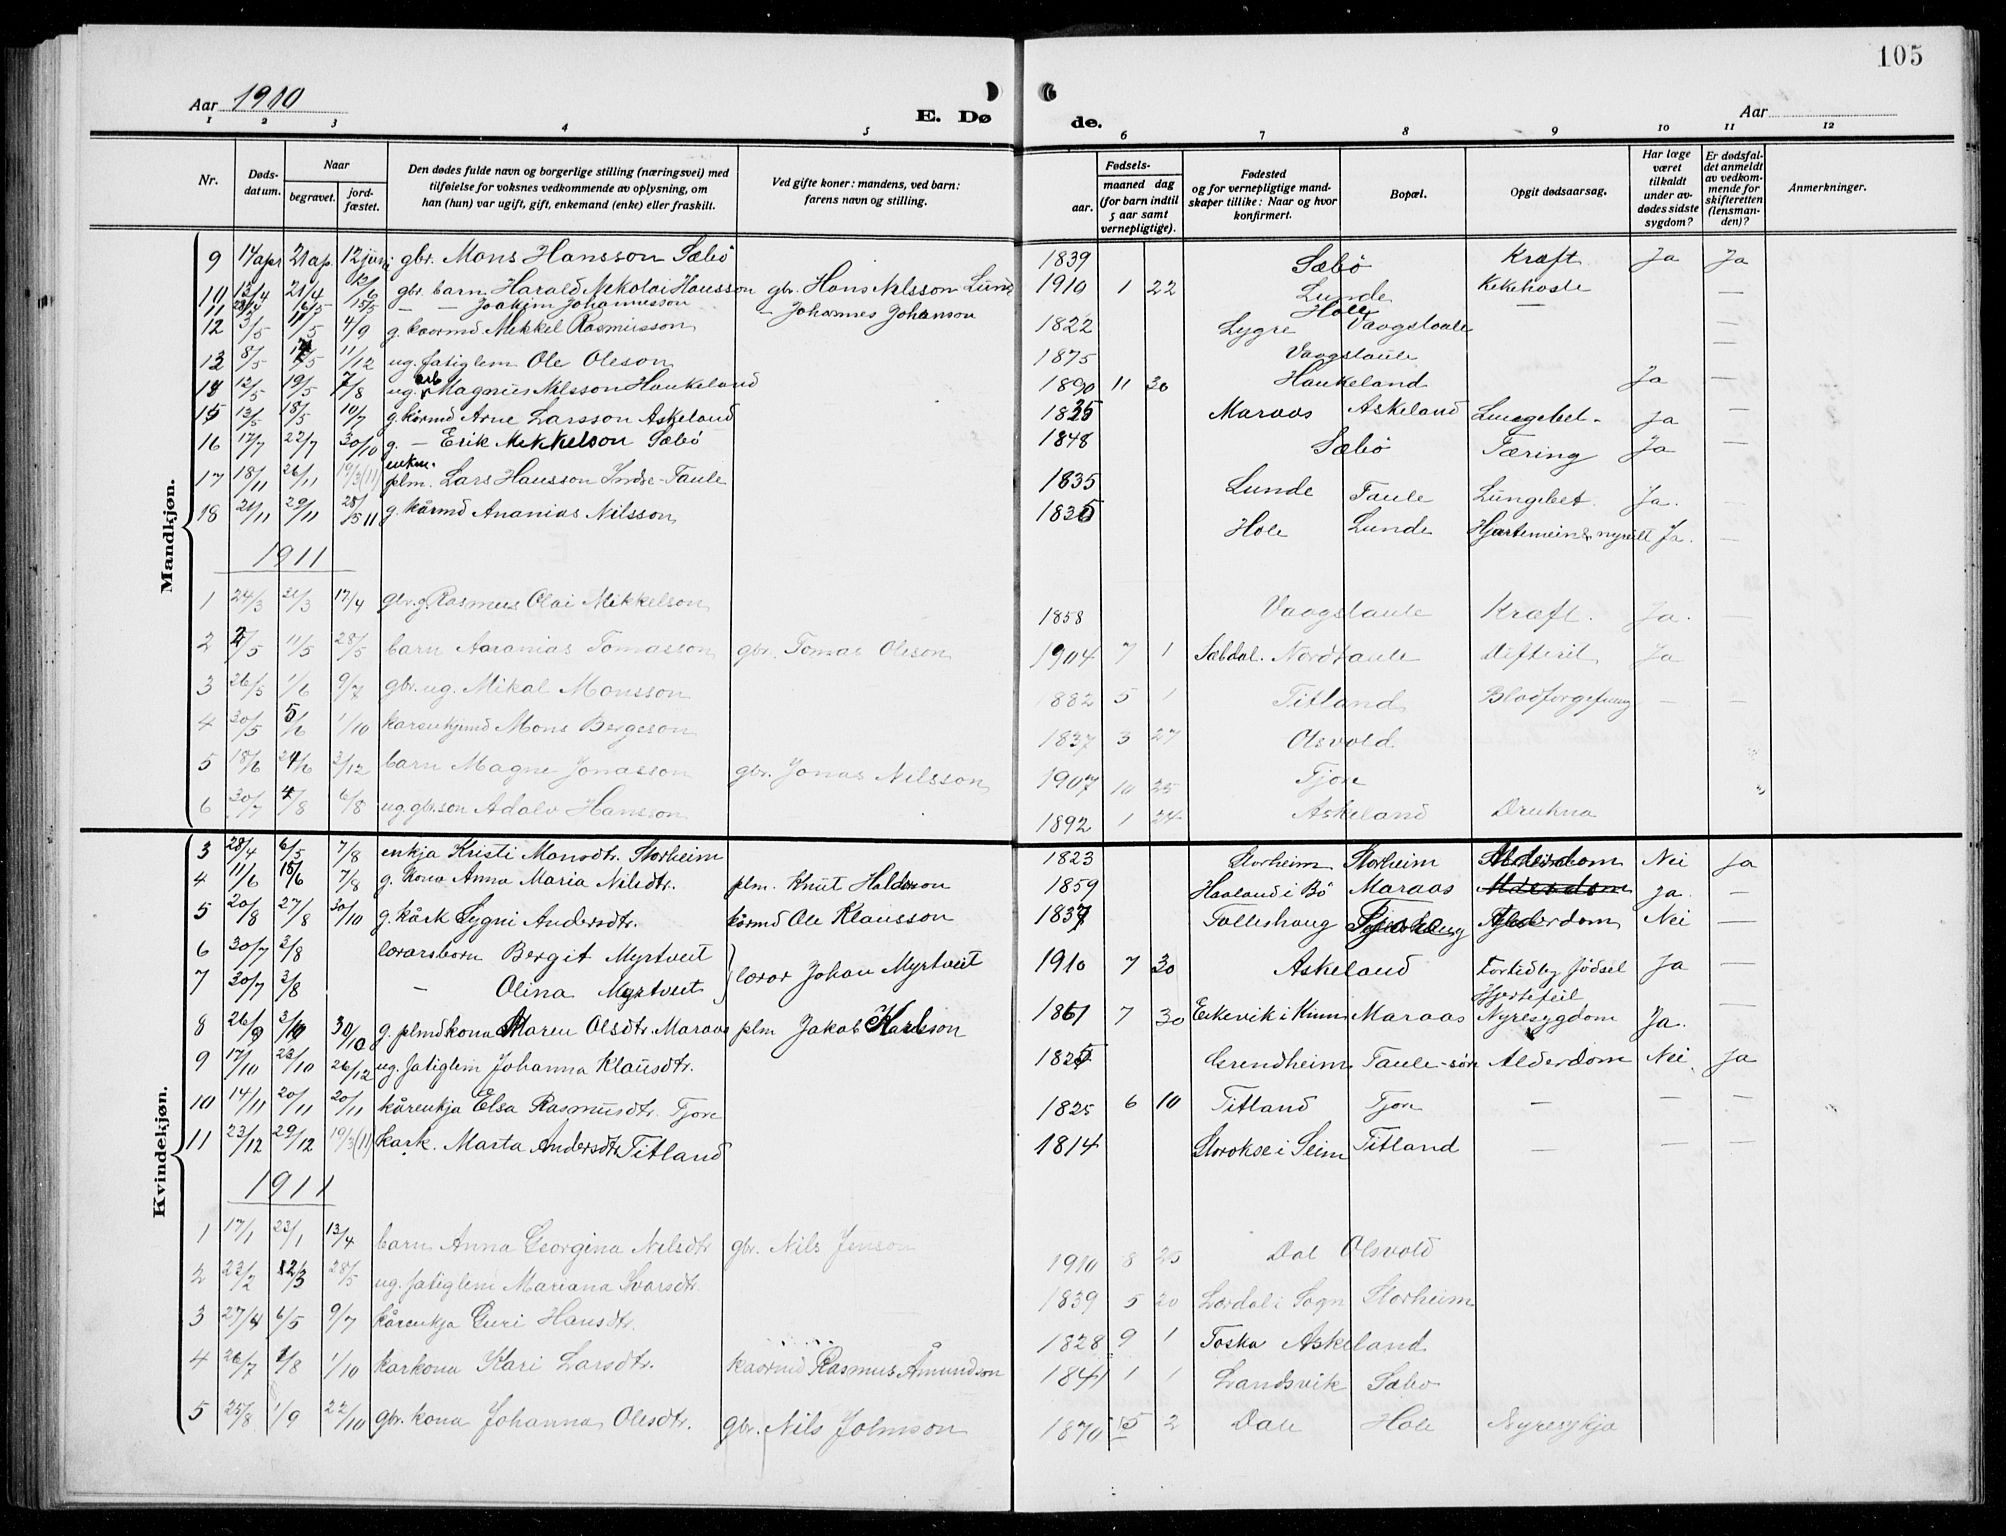 105
Aar 1910
E. Dø
de.
Aar
1 2 3 4 5 6 7 8 9 10 11 12
Nr.
Døds-
datum.
Naar
begravet.
jord-
fæstet.
Den dødes fulde navn og borgerlige stilling (næringsvei) med
tilføielse for voksnes vedkommende av oplysning, om
han (hun) var ugift, gift, enkemand (enke) eller fraskilt.
Ved gifte koner: mandens, ved barn:
farens navn og stilling.
Fødsels-
aar.
maaned dag
(for barn indtil
5 aar samt
vernepligtige).
Fødested
og for vernepligtige mand-
skaper tillike: Naar og hvor
konfirmert.
Bopæl.
Opgit dødsaarsag.
Har læge
været
tilkaldt
under av-
dødes sidste
sygdom?
Er dødsfal-
det anmeldt
av vedkom-
mende for
skifteretten
(lensman-
den)?
Anmerkninger.
Mandkjøn.
9 14 apr 21 ap. 12 juni gbr. Mons Hansson Sæbö 1839 Sæbö Kræft Ja Ja
10 13/4 21/4 12/6 gbr. barn Harald Nikolai Hansson gbr. Hans Nilsson Lund 1910 1 22 Lunde Kikehoste —
11 — — Joakim Johannesson — Johannes Johanson Hole — —
12 3/5 11/5 4/9 g. kaarmd Mikkel Rasmusson 1822 Lygre Vaagstaule —
13 8/5 17/5 11/12 ug. fatiglem Ole Oleson 1875 Vaagstaule —
14 12/5 19/5 7/8 ug. arb Magnus Nilsson Haukeland 1890 11 30 Haukeland Ja —
15 13/5 18/5 10/7 g. kårmd Arne Larsson Askeland 1835 Maraas Askeland Lungebet. Ja —
16 17/7 22/7 30/10 g. — Erik Mikkelson Sæbö 1848 Sæbö Tæring Ja —
17 18/11 26/11 19/3(11) enkm. plm. Lars Hansson Indre-Taule 1835 Lunde Taule Lungebet. Ja. —
18 21/11 29/11 28/5 11 g. kårmd Ananias Nilsson 1836 Hole Lunde Hjartemein & nyreill Ja. —
1911
1 24/3 31/3 17/4 gbr. g. Rasmus Olai Mikkelson 1858 Vaagstaule Kræft. Ja.
2 2/5 11/5 28/5 barn Ananias Tomasson gbr. Tomas Oleson 1904 7 1 Sæbdal. Nordtaule Difterit Ja —
3 26/5 1/6 9/7 gbr. ug. Mikal Monsson 1882 5 1 Titland Blodforgiftning — —
4 30/5 5/6 1/10 karenkjmd Mons Bergeson 1837 3 27 Olsvold
5 18/6 24/6 3/12 barn Magne Jonasson gbr. Jonas Nilsson 1907 10 25 Tjore
6 30/7 4/8 6/8 ug. gbr.son Adolv Hansson 1892 1 24 Askeland Drukna
Kvindekjøn.
3 28/4 6/5 7/8 enkja Kristi Monsdtr. Storheim 1823 Storheim Storheim Alderdom Nei Ja
4 11/6 18/6 7/8 g. kona Anna Maria Nilsdtr. plm. Knut Haldorson 1859 Haaland i Bö Maraas Alderdom Ja. —
5 20/8 27/8 30/10 g. kårk Sygni Andersdtr. kårmd Ole Klausson 1837 Folleshaug Alderdom Nei —
6 30/7 2/8 lærarsborn Bergit Myrtveit } lærar Johan Myrtveit 1910 7 30 Askeland Fortidleg födsel Ja —
7 30/7 2/8 — Olina Myrtveit —
8 26/9 2/10 30/10 g. plmdkona Maren Olsdtr. Maraas plm Jakob Karlson 1861 7 30 Eikevik i Kinn Maraas Hjertefeil Nyresygdom Ja.
9 17/10 23/10 26/12 ug. fatiglem Johanna Klausdtr. 1825 Grendheim Taule-sör Alderdom Nei Ja
10 14/11 20/11 20/11 kårenkja Elsa Rasmusdtr. Tjore 1825 6 10 Titland Tjore — — —
11 23/12 29/12 19/3(11) kark. Marta Andersdtr Titland 1814 Storokse i Seim Titland — — —
1911
1 17/1 23/1 13/4 barn Anna Georgina Nilsdtr gbr. Nils Jenson 1910 8 25 Dal Olsvold
2 23/2 12/3 28/5 ug. fatiglem Mariana Ivarsdtr. 1839 5 20 Lærdal i Sogn Storheim
3 27/4 6/5 9/7 kårenkja Guri Hansdtr. 1828 9 1 Toska Askeland
4 26/7 1/8 1/10 karkona Kari Larsdtr. kaarmd Rasmus Åmundson 1841 1 1 Landsvik Sæbo
5 25/8 1/9 22/10 gbr. kona Johanna Olesdtr. gbr. Nils Johnson 1870 5 2 Dale Hole Nyresykja